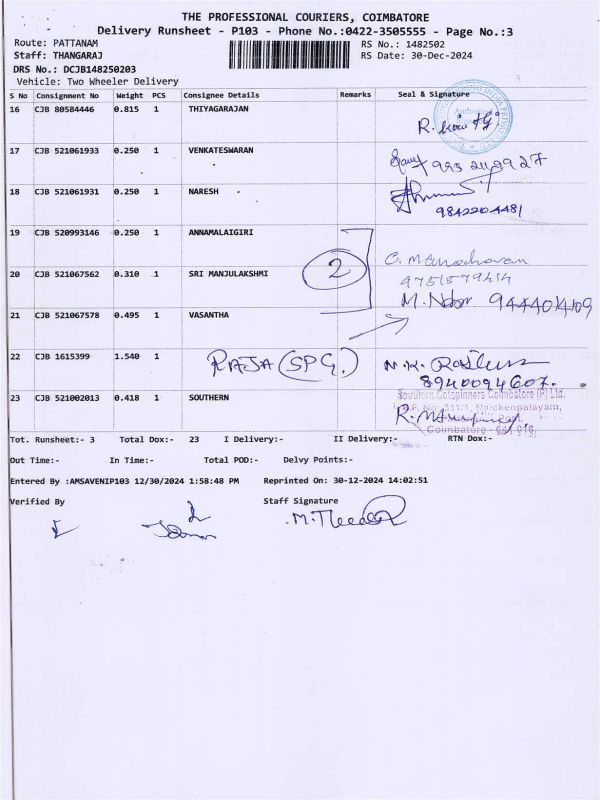 THE PROFESSIONAL COURIERS, COIMBATORE
Delivery Runsheet - P103 - Phone No.:0422-3505555 - Page No.:3
Route: PATTANAM RS No.: 1482502
Staff: THANGARAJ RS Date: 30-Dec-2024
DRS No.: DCJB148250203
Vehicle: Two Wheeler Delivery
S No Consignment No Weight PCS Consignee Details Remarks Seal & Signature
16 CJB 80584446 0.815 1 THIYAGARAJAN
17 CJB 521061933 0.250 1 VENKATESWARAN
18 CJB 521061931 0.250 1 NARESH
9842204481
19 CJB 520993146 0.250 1 ANNAMALAIGIRI
20 CJB 521067562 0.310 1 SRI MANJULAKSHMI 2
21 CJB 521067578 0.495 1 VASANTHA
22 CJB 1615399 1.540 1 RAJA (SPG.)
8940094607.
23 CJB 521002013 0.418 1 SOUTHERN
Southern Cotspinners Coimbatore (P) Ltd.
Naickenpalayam,
Coimbatore
Tot. Runsheet:- 3 Total Dox:- 23 I Delivery:- II Delivery:- RTN Dox:-
Out Time:- In Time:- Total POD:- Delvy Points:-
Entered By :AMSAVENIP103 12/30/2024 1:58:48 PM Reprinted On: 30-12-2024 14:02:51
Verified By Staff Signature